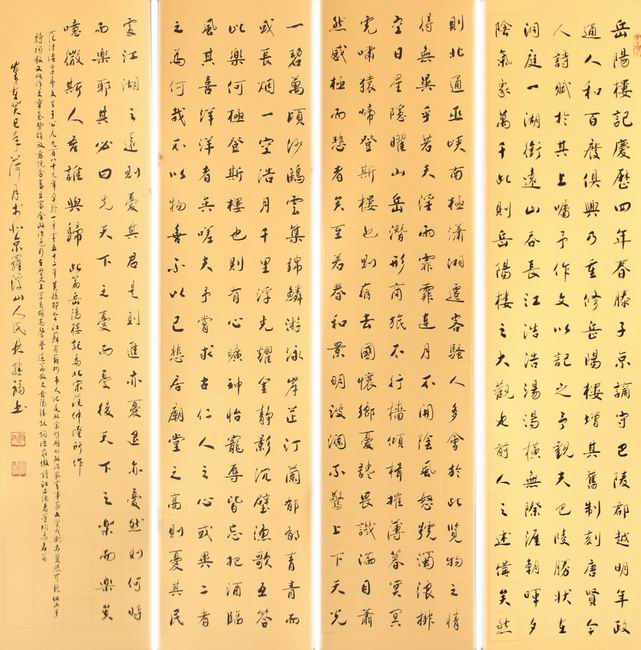 岳陽樓記慶歷四年春滕子謫守巴陵郡越明年政
通人和百廢俱興乃重修岳陽樓增其舊制刻唐賢今
人詩賦於其上囑予作文以記之予觀夫巴陵勝狀在
洞庭一湖銜遠山吞長江浩浩湯湯橫無際涯朝暉夕
陰氣象萬千此則岳陽樓之大觀也前人之述備矣然
則北通巫峽南極瀟湘遷客騷人多會於此覽物之情
得無異乎若夫淫雨霏霏連月不開陰風怒號濁浪排
空日星隱曜山岳潛形商旅不行檣傾楫摧薄暮冥冥
虎嘯猿啼登斯樓也則有去國懷鄉憂讒畏譏滿目蕭
然感極而悲者矣至若春和景明波瀾不驚上下天光
一碧萬頃沙鷗雲集錦鱗游泳岸芷汀蘭郁郁青青而
或長烟一空浩月千里浮光耀金靜影沉璧漁歌互答
此樂何極登斯樓也則有心曠神怡寵辱皆忘把酒臨
風其喜洋洋者矣嗟夫予嘗求古仁人之心或異二者
之為何哉不以物喜不以己悲居廟堂之高則憂其民
處江湖之遠則憂其君是則進亦憂退亦憂然則何時
而樂耶其必曰先天下之憂而憂後天下之樂而樂矣
噫微斯人吾誰與歸 此篇岳陽樓記為北宋范仲淹所作
癸巳年荷月於北京羅浮山人